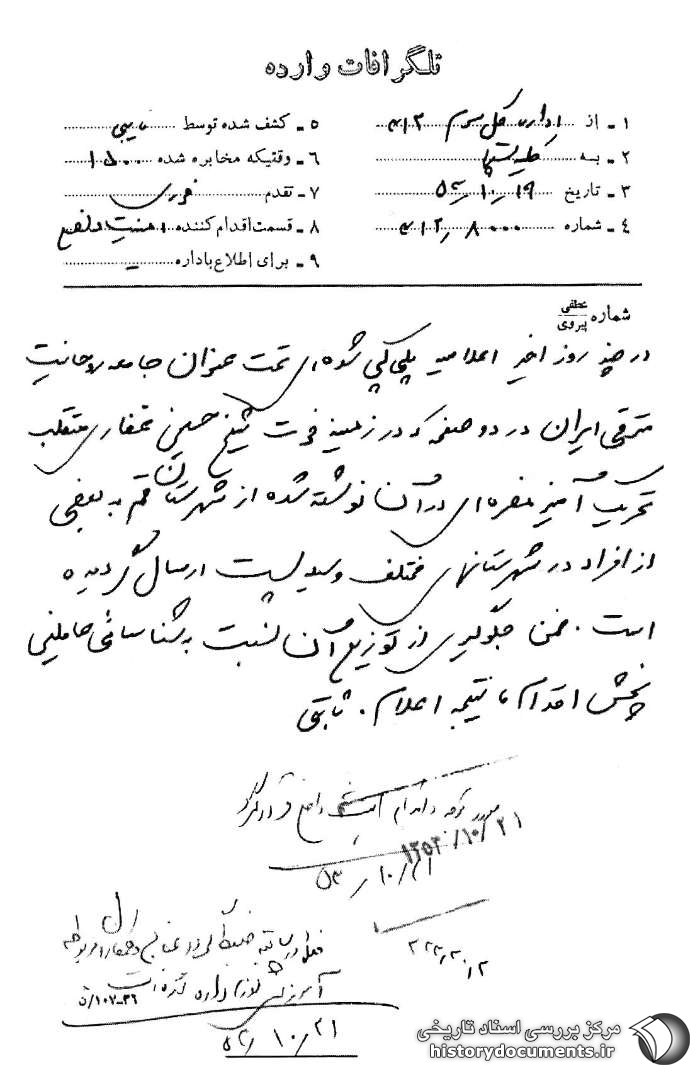 تلگرافات وارده
۱ ـ از اداره کل سوم ۳۱۲
۲ ـ به کلیه
۳ ـ تاریخ ۱۹ر۱۰ر۵۳
۴ ـ شماره ۸۰۰۰ر۳۱۲
۵ ـ کشف شده توسط
۶ ـ وقتیکه مخابره شده ۱۵۰۰
۷ ـ تقدم فوری
۸ ـ قسمت اقدام کننده امنیت داخلی
۹ ـ برای اطلاع باداره
شماره عطفی پیروی
در چند روز اخیر اعلامیه پلی کپی شده‌ای تحت عنوان جامعه روحانیت
مترقی ایران در دو صفحه که در زمینه فوت شیخ حسین غفاری متقلب
تحریک آمیز مضره‌ای در آن نوشته شده از شهرستان قم به بعضی
از افراد در شهرستانهای مختلف وسیله پست ارسال گردیده
است. ضمن جلوگیری از توزیع آن نسبت به شناسائی عاملین
پخش اقدام نتیجه اعلام. ثابتی
مورد توجه و اقدام امنیت داخلی قرار گیرد
۱۳۵۳/۱۰/۲۱
۲۱ر۱۰ر۵۳
آموزش
۱۰۷-۳۶/ث
۲۱ر۱۰ر۵۳
مرکز بررسی اسناد تاریخی
historydocuments.ir